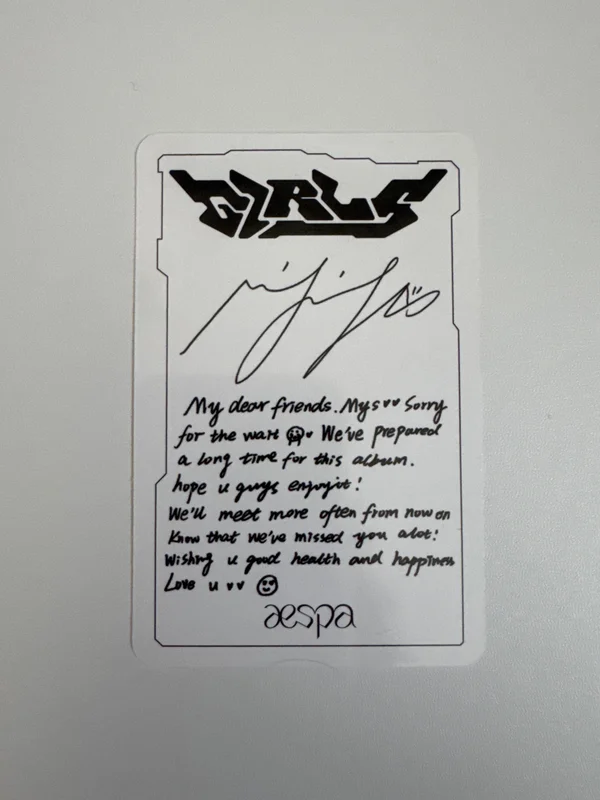 GIRLS
My dear friends. Mys♥♥ Sorry
for the wait We've prepared
a long time for this album.
hope u guys enjoyit!
We'll meet more often from now on
Know that we've missed you alot!
Wishing u good health and happiness
Love u ♥♥
aespa